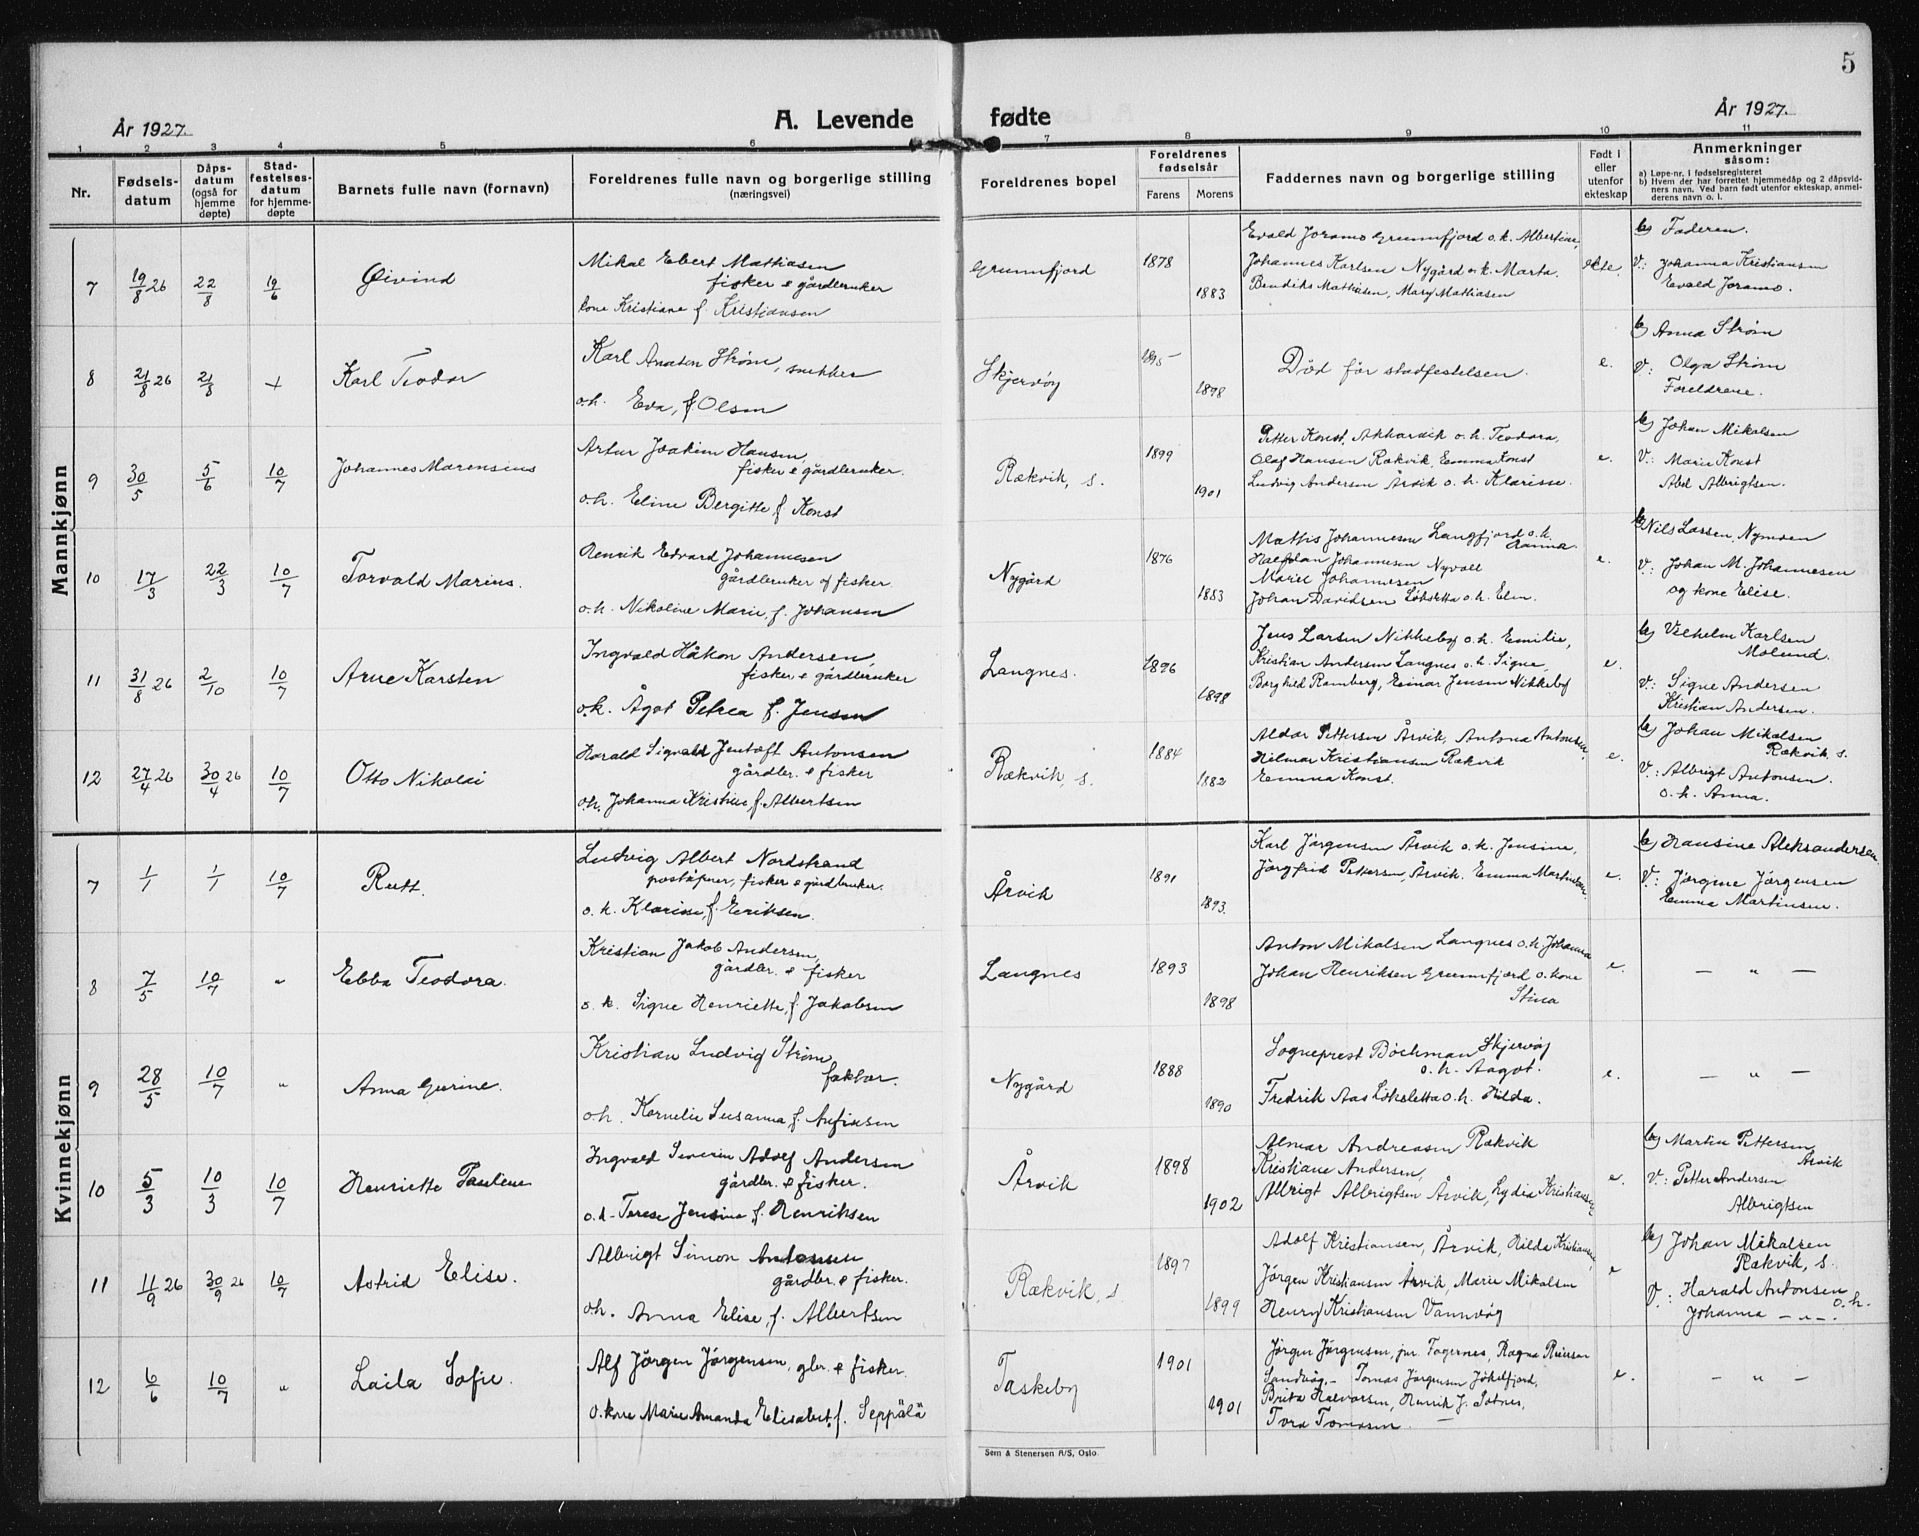 5
År 1927. A. Levende fødte År 1927.
1 2 3 4 5 6 7 8 9 10 11
Nr. Fødsels-datum Dåps-datum (også for hjemme døpte) Stad-festelses-datum for hjemme-døpte Barnets fulle navn (fornavn) Foreldrenes fulle navn og borgerlige stilling (næringsvei) Foreldrenes bopel Foreldrenes fødselsår Farens Morens Faddernes navn og borgerlige stilling Født i eller utenfor ekteskap Anmerkninger såsom:
a) Løpe-nr. i fødselsregisteret
b) Hvem der har forrettet hjemmedåp og 2 dåpsvidners navn. Ved barn født utenfor ekteskap, anmelderens navn o. l.
Mannkjønn
7 19/8 26 22/8 19/6 Øivind
Mikal Ebert Mathiasen
fisker & gårdbruker
kone Kristiane f. Kristiansen
Grunnfjord 1878 1883
Evald Joramo Grunnfjord o.k. Albertine,
Johannes Karlsen Nygård o.k. Marta.
Bendiks Mathisen, Mary Mathiasen
ekte.
b) Faderen.
V.: Johanna Kristiansen
Evald Joramo.
8 21/8 26 21/8 + Karl Teodor
Karl Anaton Strøm, snekker
o.h. Eva, f. Olsen
Skjervøy 1895 1898
Død før stadfestelsen.
e.
b) Anna Strøm
V.: Olga Strøm
Foreldrene.
9 30/5 5/6 10/7 Johannes Marensius
Artur Joakim Hansen,
fisker & gårdbruker.
o.h. Eline Bergitte f. Konst
Rækvik, s. 1899 1901
Petter Konst, Akkarvik o.h. Teodora,
Olaf Hansen Rækvik, Emma Konst
Ludvig Andersen Årvik o.h. Klarisse.
e.
b) Johan Mikalsen
V.: Marie Konst
Abel Albrigtsen.
10 17/3 22/3 10/7 Torvald Marius.
Henrik Edvard Johannesen
gårdbruker og fisker.
o.h. Nikoline Marie, f. Johansen
Nygård 1876 1883
Mathis Johannesen Langfjord o.h. Hanna.
Halfdan Johannesen Nyvoll
Marie Johannesen
Johan Davidsen Løksletta o.h. Elen.
e.
b) Nils Larsen, Nymoen
V.: Johan M. Johannesen
og kone Elise.
11 31/8 26 2/10 10/7 Arne Karsten
Ingvald Håkon Andersen,
fisker & gårdbruker
o.k. Ågot Petrea f. Jensen
Langnes. 1896 1898
Jens Larsen Nikkeby o.h. Emilie,
Kristian Andersen Langnes o.h. Signe,
Borghild Ramberg, Einar Jensen Nikkeby
e.
b) Vilhelm Karlsen
Molund.
V.: Signe Andersen
Kristian Andersen.
12 27/4 26 30/4 26 10/7 Otto Nikolai
Harald Sigvald Jentoft Antonsen
gårdbr. & fisker
o.h. Johanna Kristine, f. Albertsen
Rækvik, s. 1884 1882
Aldor Pettersen Årvik, Antona Antonsen,
Hilmar Kristiansen Rækvik
Emma Konst.
e.
b) Johan Mikalsen
Rækvik, s.
V.: Albrigt Antonsen.
o.h. Anna.
Kvinnekjønn
7 1/1 1/1 10/7 Rutt.
Ludvig Albert Nordstrand
poståpner, fisker & gårdbruker.
o.k. Klarisse, f. Eriksen.
Årvik 1891 1893.
Karl Jørgensen Årvik o.k. Jensine,
Jørgfrid Pettersen, Årvik. Emma Martinsen
e.
b) Hansine Aleksandersen.
V.: Jørgine Jørgensen
Emma Martinsen.
8 7/5 10/7 " Ebba Teodora.
Kristian Jakob Andersen,
gårdbr. & fisker
o.k. Signe Henriette, f. Jakobsen
Langnes 1893 1898
Anton Mikalsen Langnes o.h. Johanna
Johan Henriksen Grunnfjord o. kone
Stina
e.
— " —
9 28/5 10/7 " Anna Gurine.
Kristian Ludvig Strøm
faktor.
o.h. Kornelie Susanna f. Anfinsen
Nygård 1888 1890
Sogneprest Bochman Skjervøy
o.h. Aagot.
Fredrik Aas Løksletta o.h. Hilda.
e.
— " —
10 5/3 10/3 10/7 Henriette Pauline
Ingvald Severin Adolf Andersen
gårdbr. & fisker.
o.k. Terese Jensine f. Henriksen
Årvik 1898 1902
Almar Andreasen Rækvik
Kristiane Andersen,
Albrigt Albrigtsen Årvik, Lydia Kristiansen,
e.
b) Martin Pettersen
Årvik
V.: Petter Andersen
Albrigtsen
11 11/9 26 30/9 26 10/7 Astrid Elise.
Albrigt Simon Antonsen
gårdbr. & fisker.
o.h. Anna Elise, f. Albertsen
Rækvik, s. 1897 1899
Adolf Kristiansen, Årvik, Hilda Kristiansen,
Jørgen Kristiansen Årvik, Marie Mikalsen
Henry Kristiansen Vannvåg
e
b) Johan Mikalsen
Rækvik, s.
V.: Harald Antonsen
o.h.
Johanna — " —.
12 6/6 10/7 " Laila Sofie.
Alf Jørgen Jørgensen, gbr. & fisker.
o. kone Marie Amanda Elisabet, f. Seppälä
Taskeby 1901 1901
Jørgen Jørgensen, jnr. Fagernes, Ragna Reiersen
Sandvåg. — Tomas Jørgensen Jøkelfjord,
Brita Halvorsen, Henrik J. Sotnes,
Tora Tomasen. —
e.
— " —
Sem & Stenersen A/S, Oslo.